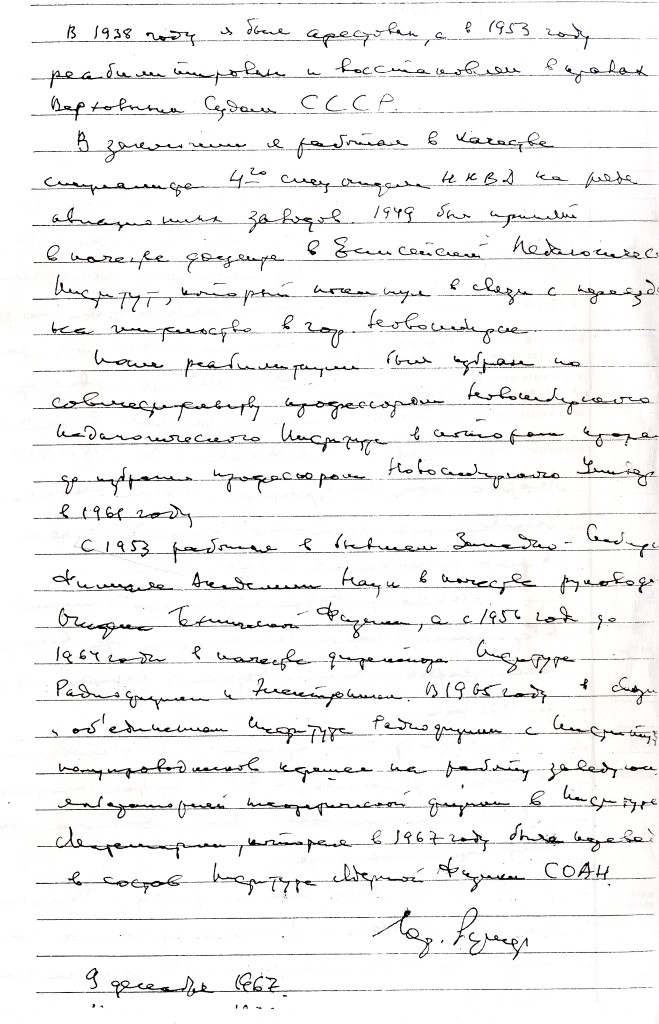 В 1938 году я был арестован, а в 1953 году
реабилитирован и восстановлен в правах
Верховным Судом СССР.
В заключении я работал в качестве
специалиста 4го спец отдела НКВД на ряде
авиационных заводов. 1949 был принят
в качестве доцента в Енисейский Педагогичес
Институт, который покинул в связи с переезд
на жительство в гор. Новосибирск.
После реабилитации был избран по
совместительству профессором Новосибирского
педагогического Института в котором
до избрания профессором Новосибирского Универ
в 1961 году
С 1953 работал в бывшем Западно-Сибир
Филиале Академии Наук в качестве руковод
Отдела Технической Физики, а с 1956 года до
1964 года в качестве директора Института
Радиофизики и Электроники. В 1965 году в связи
с об'единением Института Радиофизики с Институт
полупроводников перешел на работу заведующ
лабораторией теоретической физики в Институте
которая в 1967 году была переве
в состав Института Ядерной Физики СОАН.
Юр. Румер
9 декабря 1967.